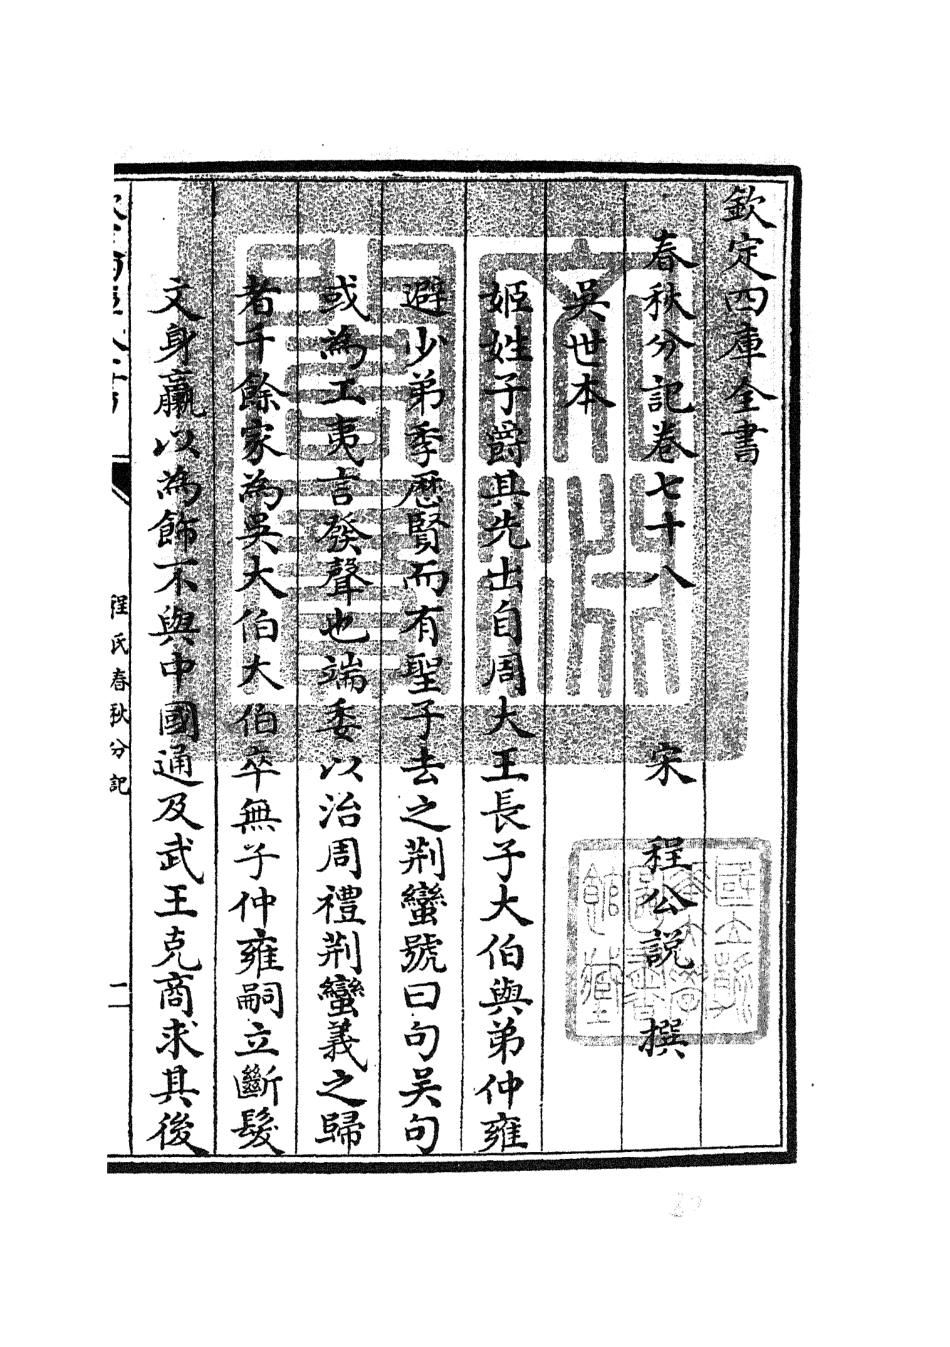 欽定四庫全書
春秋分記卷七十八　宋　程公說　撰
吳世本
姬姓子爵其先出自周大王長子大伯與弟仲雍
避少弟季歷賢而有聖子去之荆蠻號曰句吴句
或為工夷言發聲也端委以治周禮荆蠻義之歸
者千餘家為吳大伯大伯卒無子仲雍嗣立斷髮
文身臝以為飾不與中國通及武王克商求其後
程氏春秋分記
一